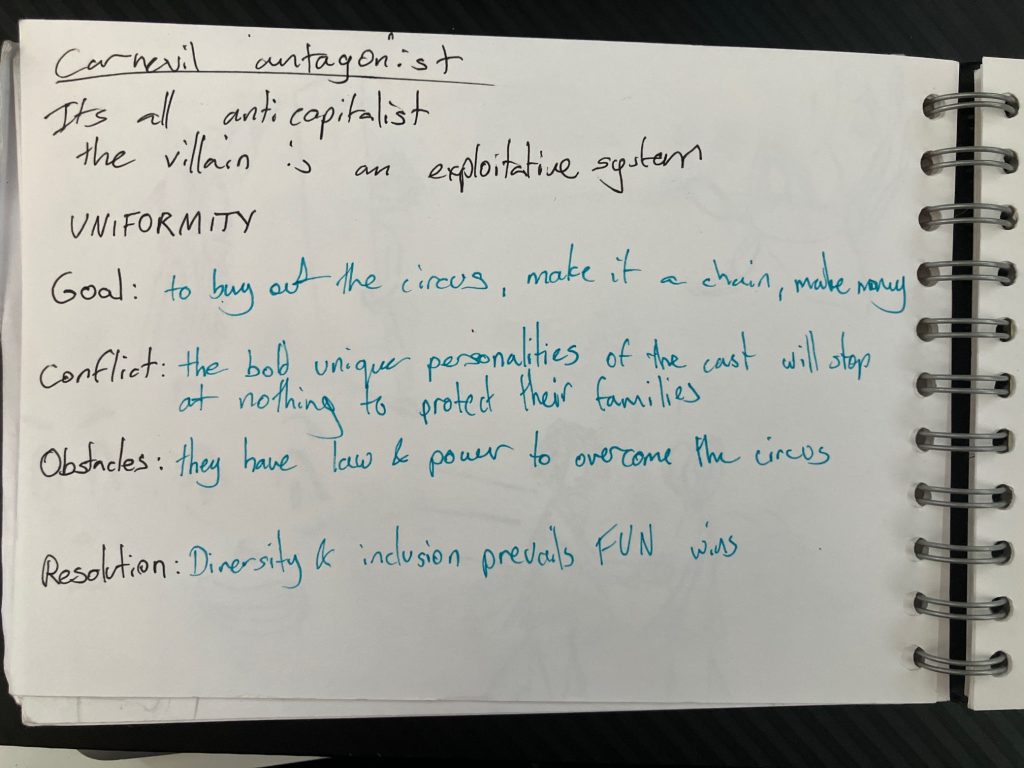 Carnevil antagonist
Its all anticapitalist
the villain is an exploitative system
UNIFORMITY
Goal: to buy out the circus, make it a chain, make money
Conflict: the bold unique personalities of the cast will stop
at nothing to protect their families
Obstacles: they have law & power to overcome the circus
Resolution: Diversity & inclusion prevails FUN wins